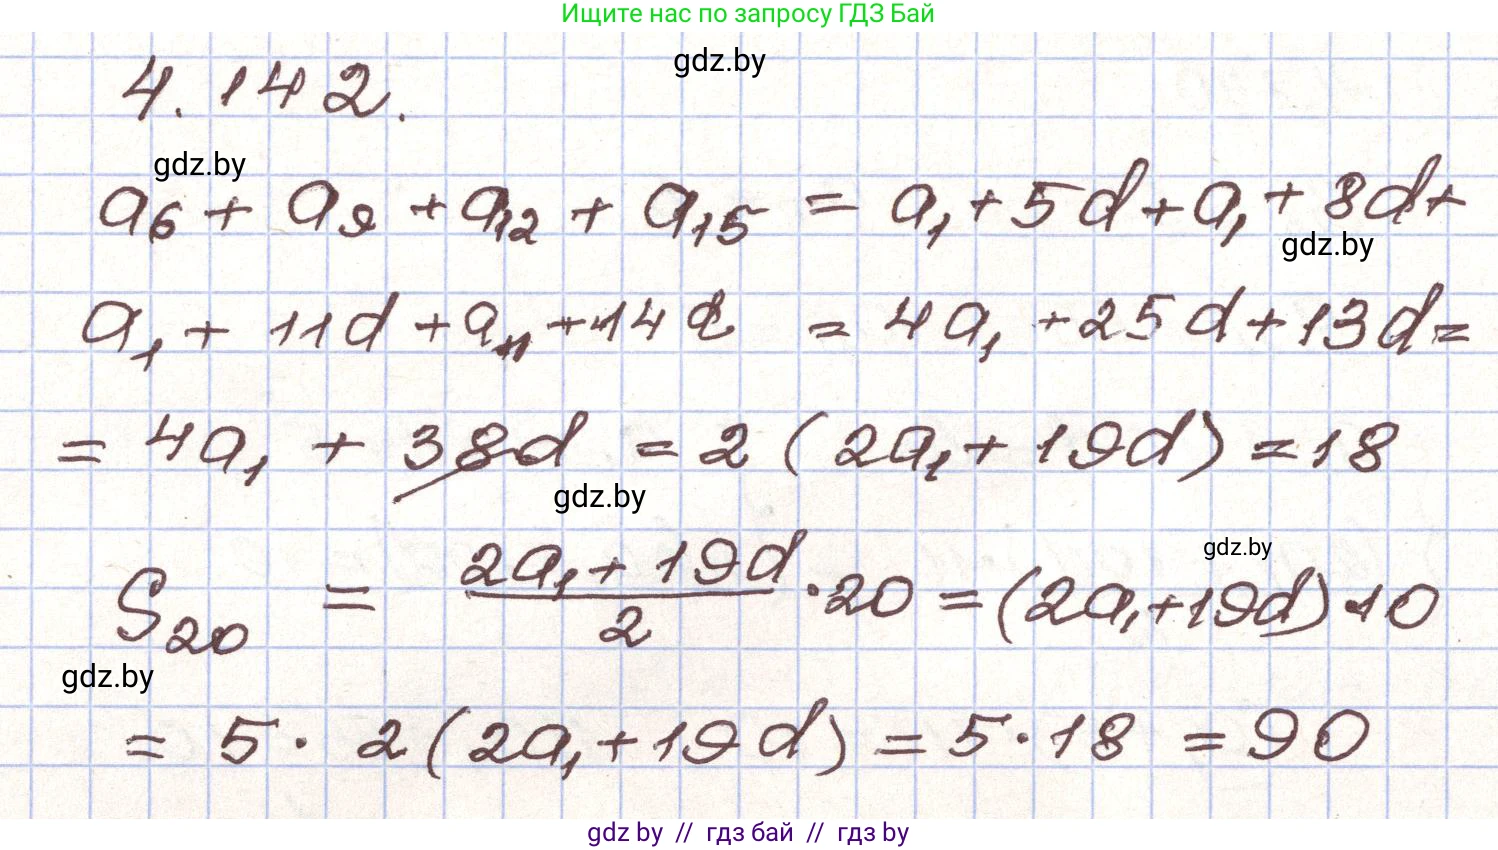 Ищите нас по запросу ГДЗ Бай
gdz.by
4.142.
gdz.by
a₆ + a₉ + a₁₂ + a₁₅ = a₁ + 5d + a₁ + 8d +
gdz.by
a₁ + 11d + a₁ + 14d = 4a₁ + 25d + 13d =
= 4a₁ + 38d = 2 (2a₁ + 19d) = 18
gdz.by
gdz.by
S₂₀ = (2a₁ + 19d)/2 · 20 = (2a₁ + 19d) · 10
gdz.by
= 5 · 2 (2a₁ + 19d) = 5 · 18 = 90
gdz by // гдз бай // гдз by